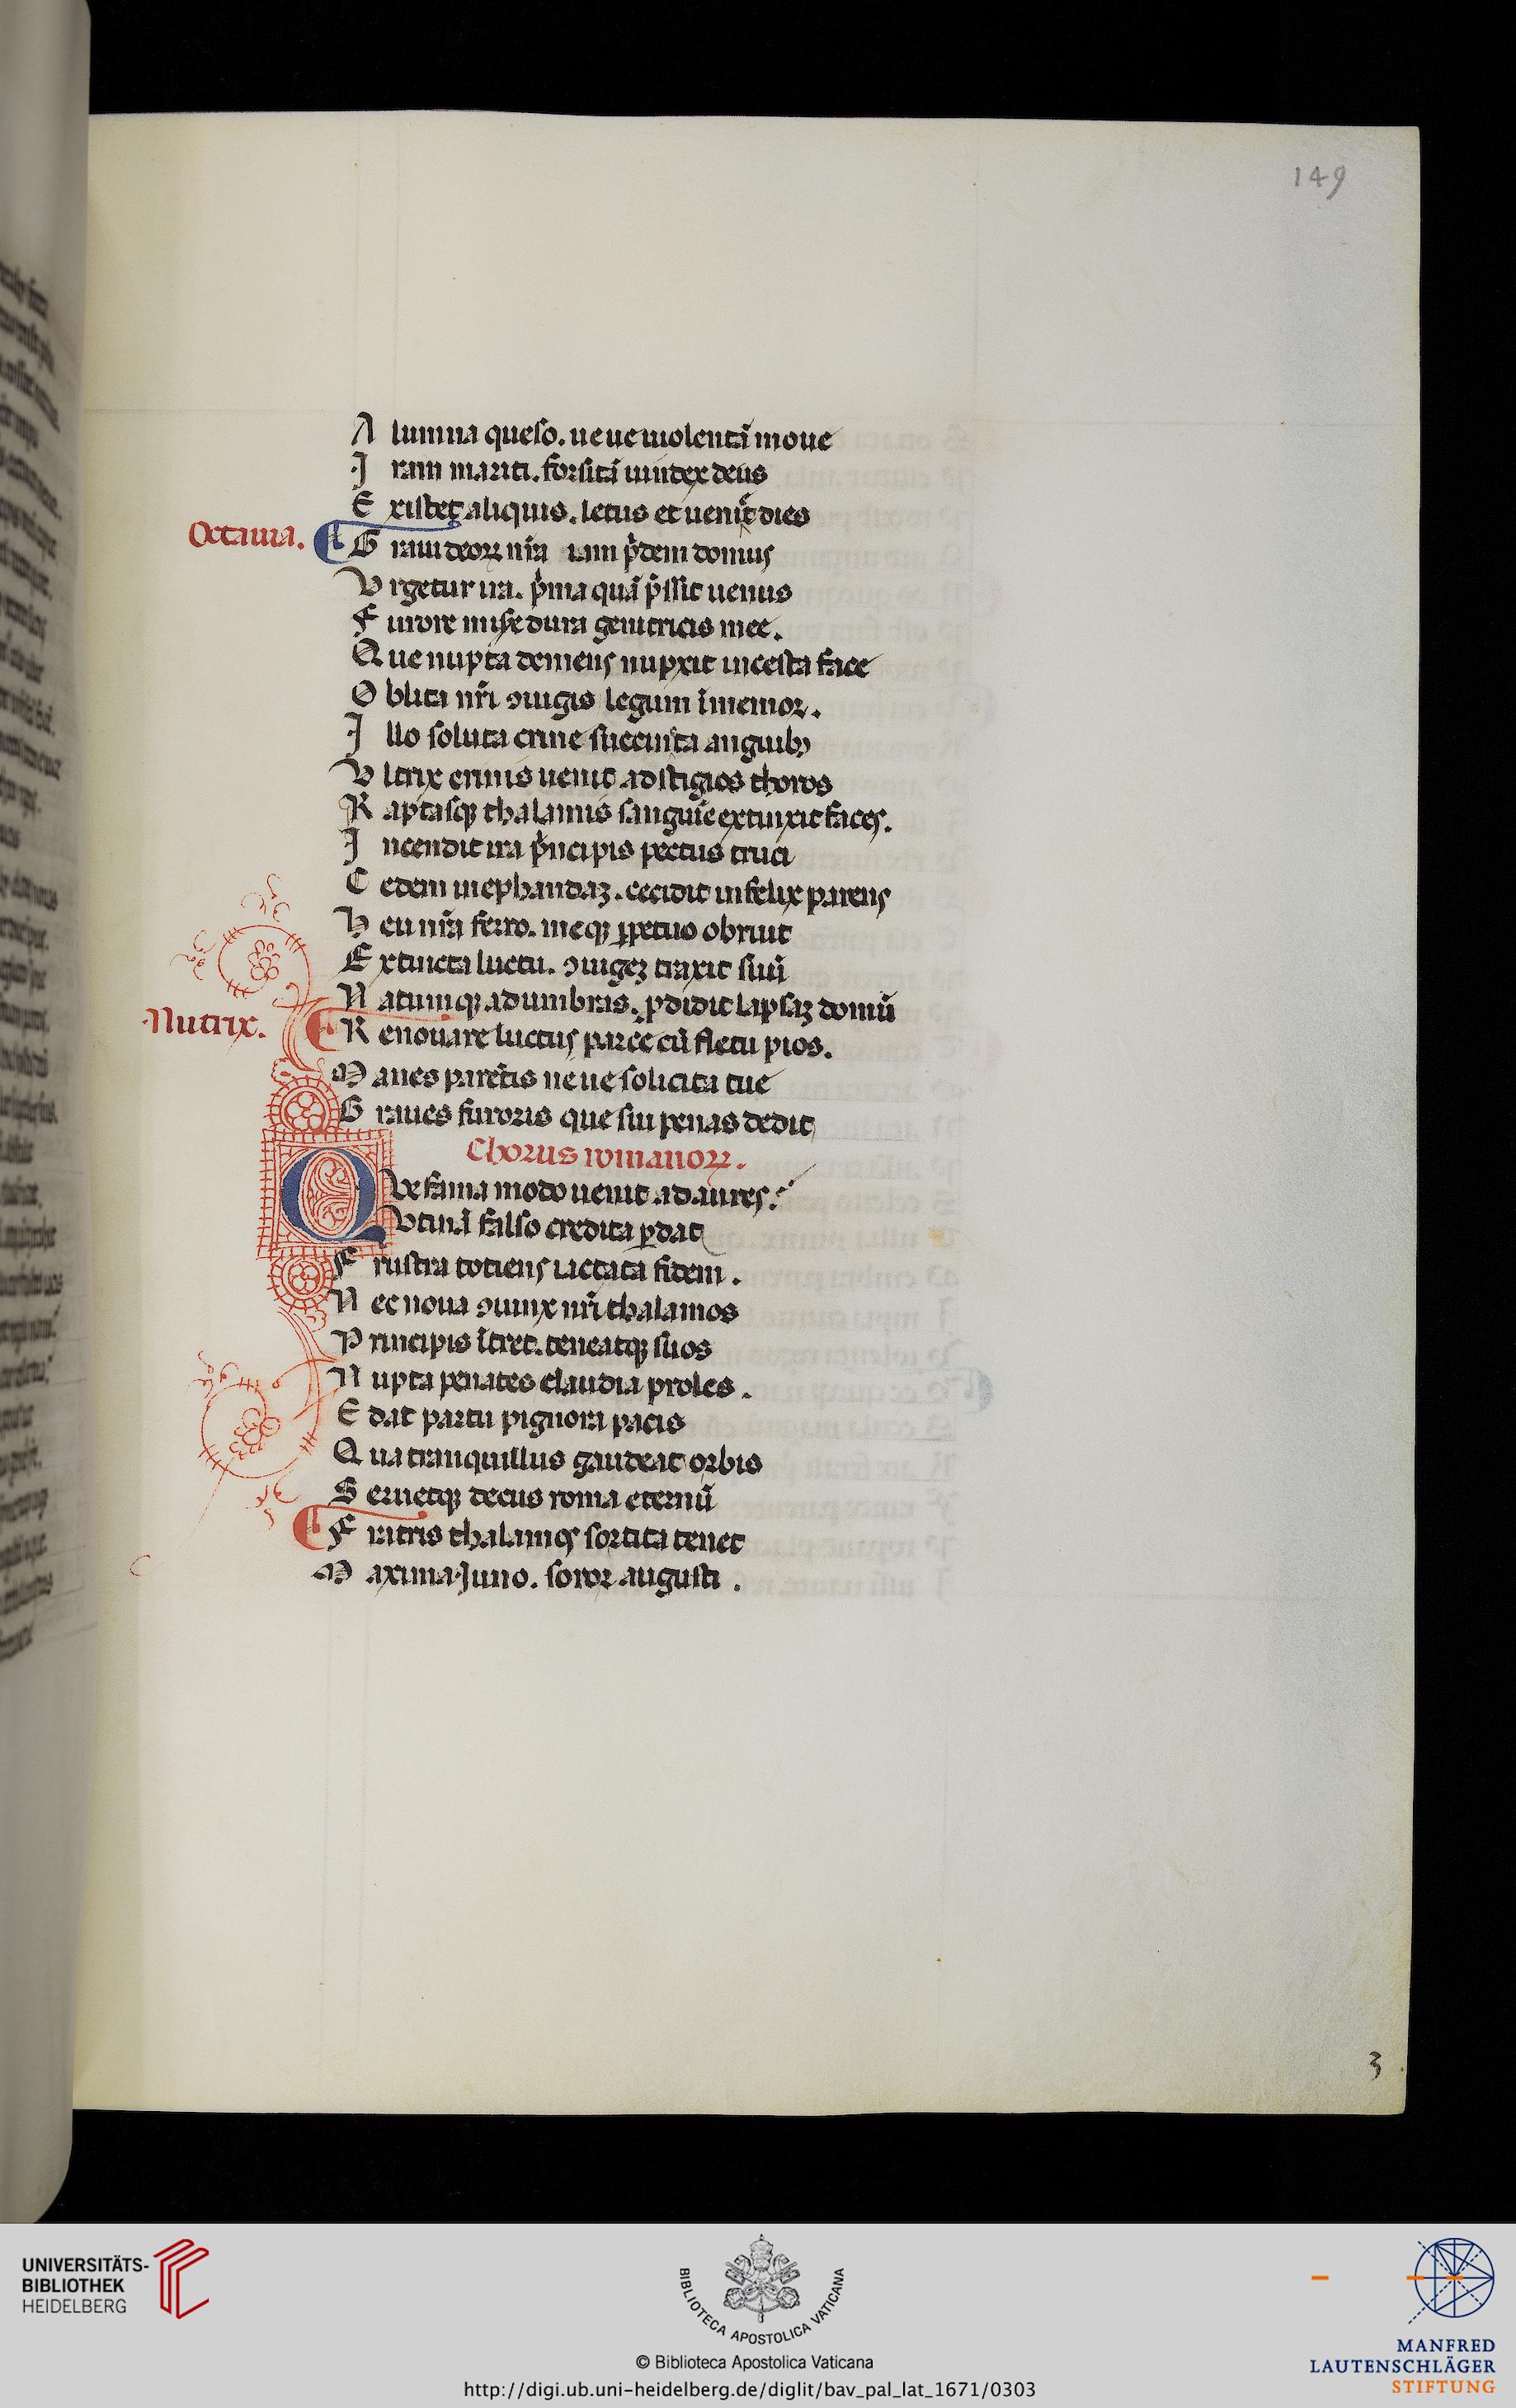 149
A lumna queso. neue uiolentā moue
I ram mariti. forsitā uindex deus
E xistet aliquis. letus et ueniet dies
Octauia.
G raui deoꝝ nr̄a iam pͥdem domus
V rgetur ira. pͥma quā p̄ssit uenus
F urore mise dura genitricis mee.
Q ue nupta demens nupxit incesta face
O blita nr̄i ꝯiugis legum īmemor.
I llo soluta crine succincta anguibꝫ
V ltrix erinis uenit ad stigios thoros
R aptasqꝫ thalamis sanguīe extinxit faces.
I ncendit ira pͥncipis pectus truci
C edem in ephandaꝫ. cecidit infelix parens
H eu nr̄a ferro. meqꝫ ꝑpetuo obruit
E xtincta luctu. ꝯiugeꝫ traxit suū
N atumqꝫ ad umbras. ꝓdidit lapsaꝫ domū
Nutrix.
R enouare luctus parce cū fletu pios.
M anes parētis neue solicita tue
G raues furoris que sui penas dedit
Chorus romanoꝝ.
Q Ve fama modo uenit ad aures.
V tinā falso credita ꝑdat
F rustra totiens iactata fidem.
N ec noua ꝯiunx nr̄i thalamos
P rincipis ītret. teneatqꝫ suos
N upta penates claudia proles.
E dat partu pignora pacis
Q ua tranquillus gaudeat orbis
S eruetqꝫ decus roma eternū
F ratris thalamos sortita tenet
M axima Juno. soror augusti.
3
UNIVERSITÄTS-
BIBLIOTHEK
HEIDELBERG
BIBLIOTECA APOSTOLICA VATICANA
© Biblioteca Apostolica Vaticana
http://digi.ub.uni-heidelberg.de/diglit/bav_pal_lat_1671/0303
MANFRED
LAUTENSCHLÄGER
STIFTUNG